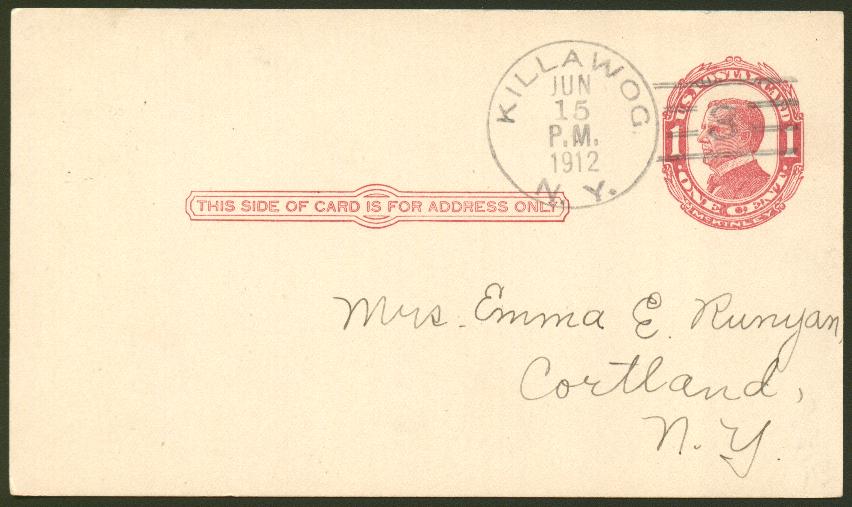 KILLAWOG
JUN
15
P.M.
1912
N. Y.
U.S. POSTAL CARD
1 1
ONE CENT
McKINLEY
THIS SIDE OF CARD IS FOR ADDRESS ONLY
Mrs. Emma E. Runyan,
Cortland,
N. Y.